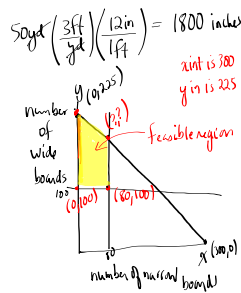 50yd (3ft/yd) (12in/1ft) = 1800 inches
x int is 300
y in is 225
y (0,225)
number
of
wide
boards
feasible region
100
(0,100)
(80,100)
80
x (300,0)
number of narrow
boards